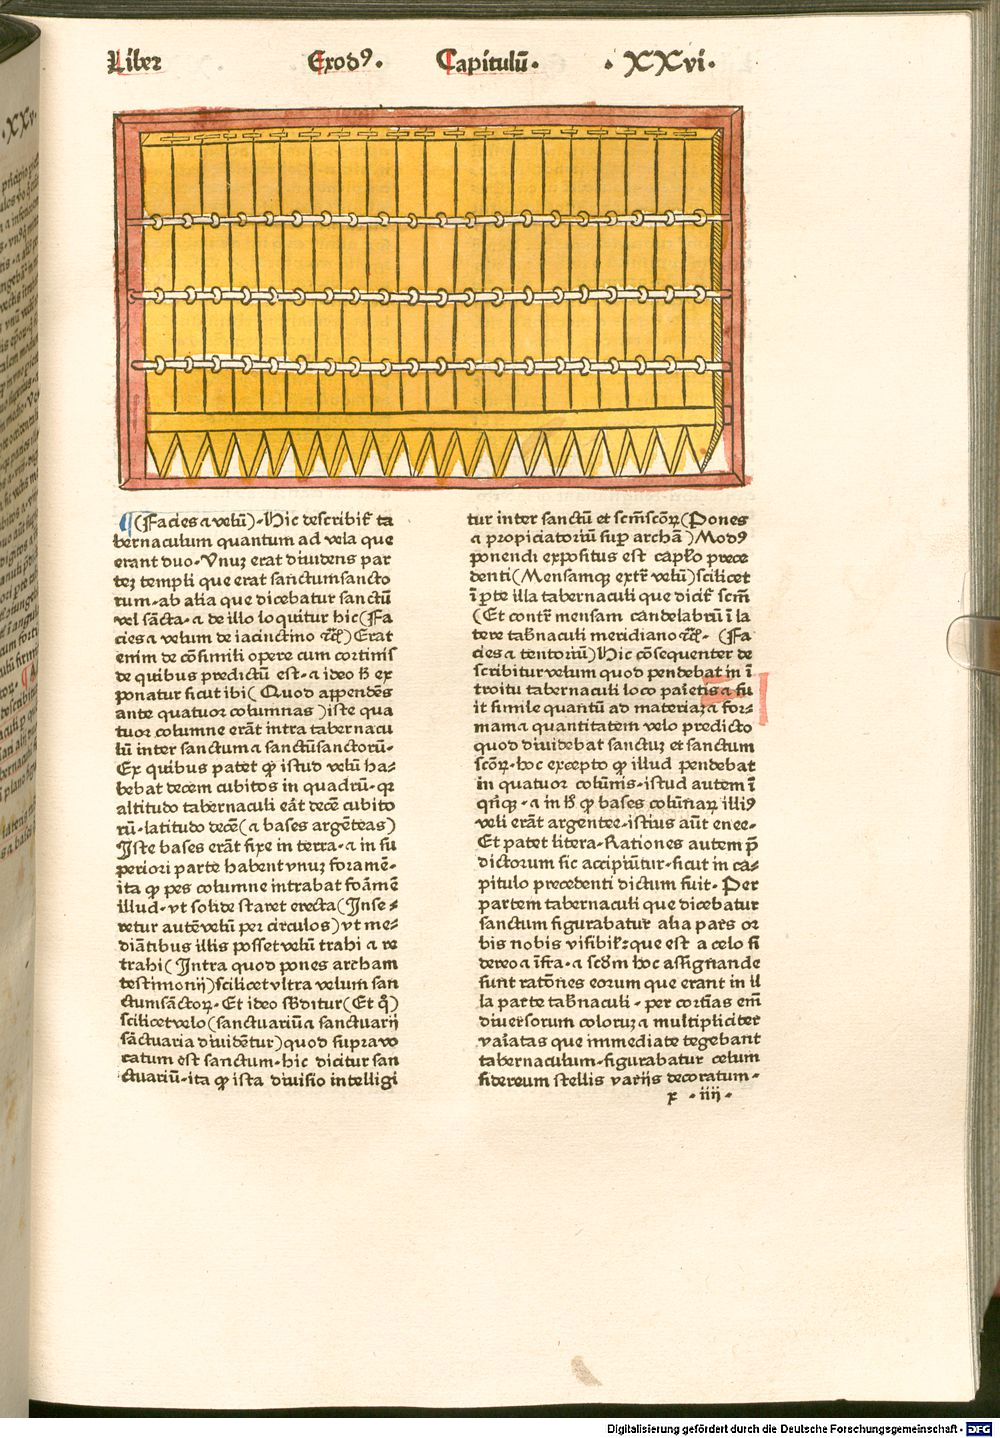 Liber Exodꝰ. Capitulū. .XXvi.
¶(Facies ⁊ velū). Hic describit̄ ta
bernaculum quantum ad vela que
erant duo. Vnuꝫ erat diuidens par
teꝫ templi que erat sanctumsancto
rum. ab alia que dicebatur sanctū
vel sācta. ⁊ de illo loquitur hic (Fa
cies ⁊ velum de iacinctino ⁊c̄) Erat
enim de cōsimili opere cum cortinis
de quibus predictū est. ⁊ ideo h̄ ex
ponatur sicut ibi (Quod appendēs
ante quatuor columnas) iste qua
tuor columne erāt intra tabernacu
lū inter sanctum ⁊ sanctūsanctorū.
Ex quibus patet ꝙ istud velū ha-
bebat decem cubitos in quadrū. qꝛ
altitudo tabernaculi eāt decē cubito
rū. latitudo decē (⁊ bases argēteas)
Iste bases erāt fixe in terra. ⁊ in su
periori parte habent vnuꝫ foramē.
ita ꝙ pes columne intrabat foāmē
illud. vt solide staret erecta (Inse-
retur autē velū per circulos) vt me-
diātibus illis posset velū trahi ⁊ re
trahi (Intra quod pones archam
testimonij) scilicet vltra velum san
ctumsāctoꝝ. Et ideo sb̄ditur (Et q̄)
scilicet velo (sanctuariū ⁊ sanctuarij
sāctuaria diuidētur) quod supra vo
catum est sanctum. hic dicitur san
ctuariū. ita ꝙ ista diuisio intelligi
tur inter sanctū et scm̄scōꝝ (Pones
⁊ propiciatoriū suꝑ archā) Modꝰ
ponendi expositus est caplo prece
denti (Mensamqꝫ extr̄ velū) scilicet
ī ꝑte illa tabernaculi que dicit̄ scm̄
(Et contr̄ mensam candelabrū ī la
tere tab̄naculi meridiano ⁊c̄. (Fa
cies ⁊ tentoriū) Hic cōsequenter de
scribitur velum quod pendebat in ī
troitu tabernaculi loco paīetis ⁊ fu
it simile quantū ad materiaꝫ ⁊ for-
mam ⁊ quantitatem velo predicto
quod diuidebat sanctuꝫ et sanctum
scōꝝ. hoc excepto ꝙ illud pendebat
in quatuor colūnis. istud autem ī
qn̄qꝫ. ⁊ in h̄ ꝙ bases colūnaꝝ illiꝰ
veli erāt argentee. istius aūt enee.
Et patet litera. Rationes autem p̄
dictorum sic accipiūtur. sicut in ca-
pitulo precedenti dictum fuit. Per
partem tabernaculi que dicebatur
sanctum figurabatur alia pars or
bis nobis visibil̓: que est a celo si
dereo ⁊ īfra. ⁊ scd̄m hoc assignande
sunt ratōnes eorum que erant in il
la parte tab̄naculi. per cortīas em̄
diuersorum coloruꝫ ⁊ multipliciter
vaīatas que immediate tegebant
tabernaculum. figurabatur celum
sidereum stellis varijs decoratum.
x .iiij.
Digitalisierung gefördert durch die Deutsche Forschungsgemeinschaft - DFG